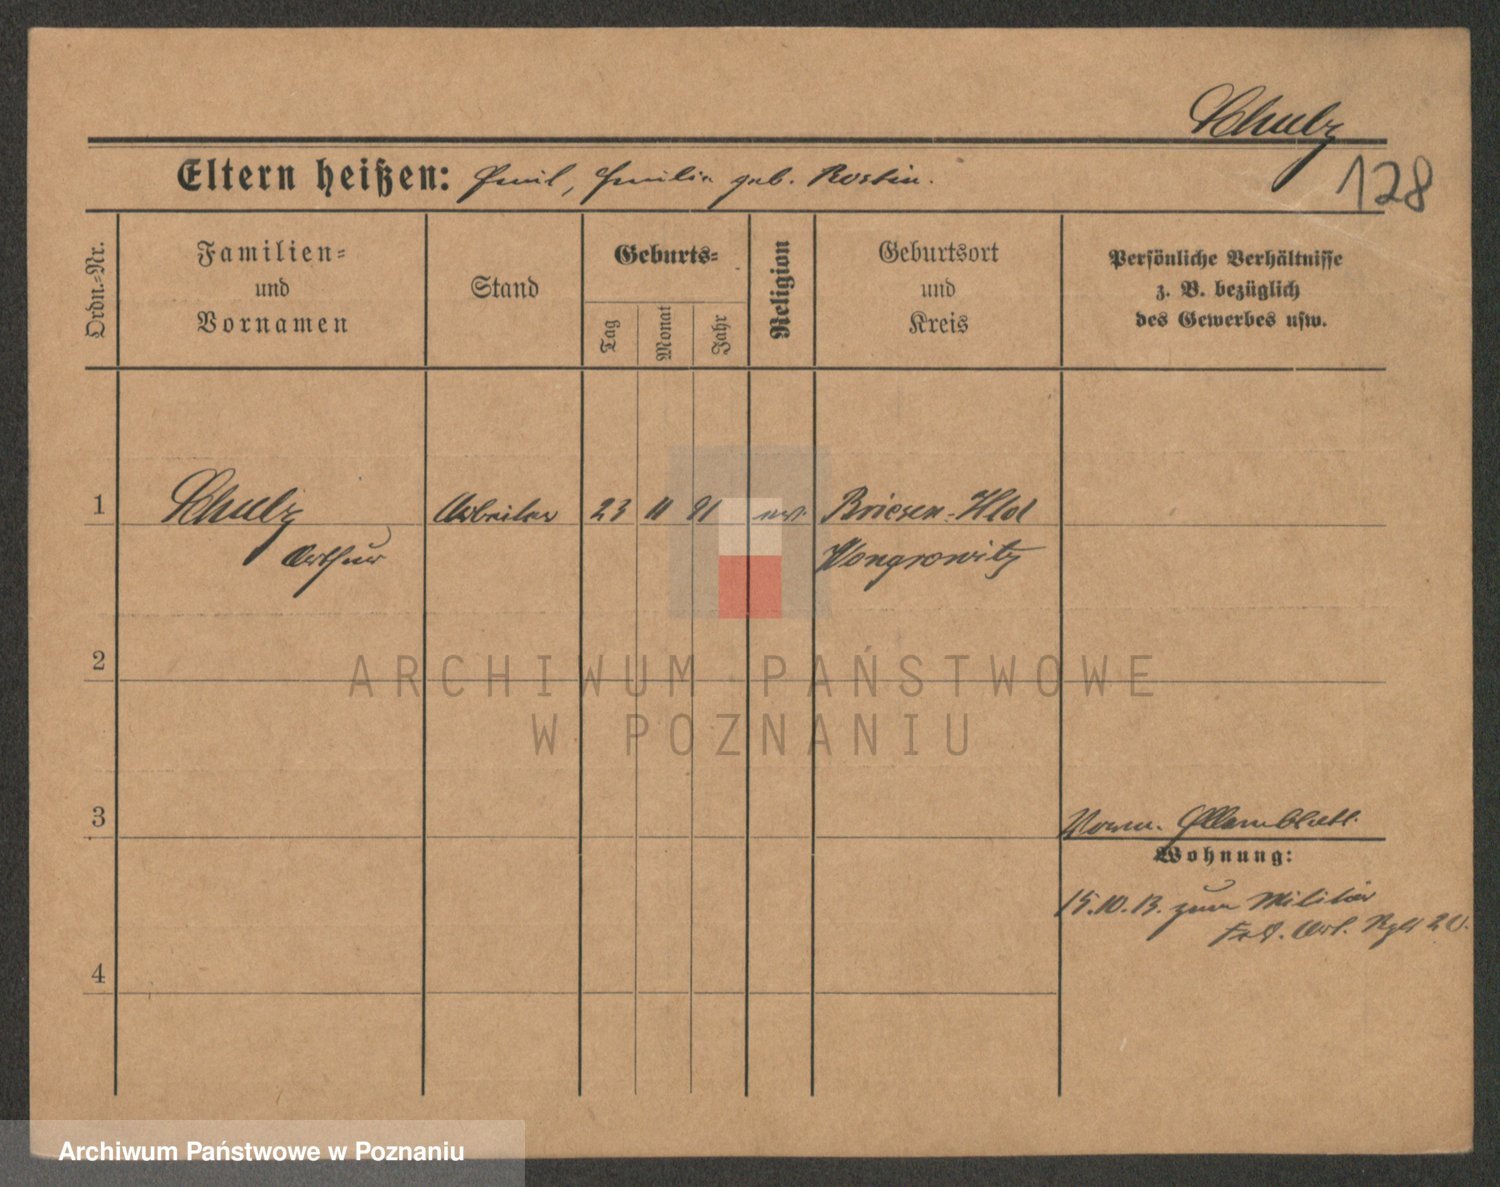 Schulz
128
Eltern heißen: Emil, Emilie geb. Rostin.
Ordn.-Nr.
Familien-
und
Vornamen
Stand
Geburts-
Tag
Monat
Jahr
Religion
Geburtsort
und
Kreis
Persönliche Verhältnisse
z. B. bezüglich
des Gewerbes usw.
1
Schulz
Arbeiter
23 11 91
ev.
Briesen-Hld
Arthur
Wongrowitz
2
3
4
Wohnung:
15.10.13. zum Militär
Art. Rgt 20.
ARCHIWUM PAŃSTWOWE
W POZNANIU
Archiwum Państwowe w Poznaniu